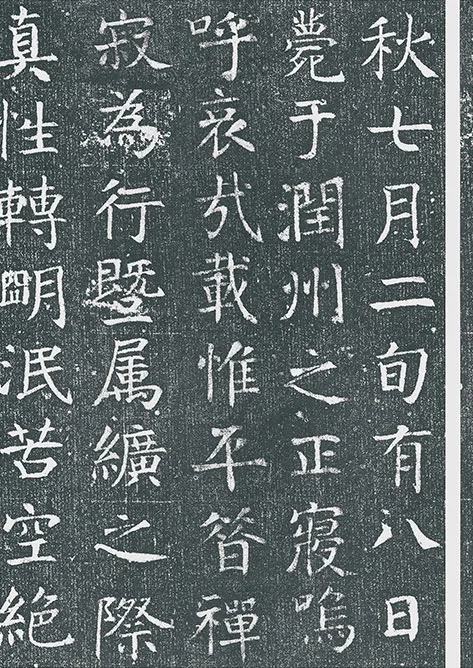 秋七月二旬有八日
薨于潤州之正寢嗚
呼哀㢤載惟平昔禪
寂為行暨属纊之際
真性轉明泯苦空絶